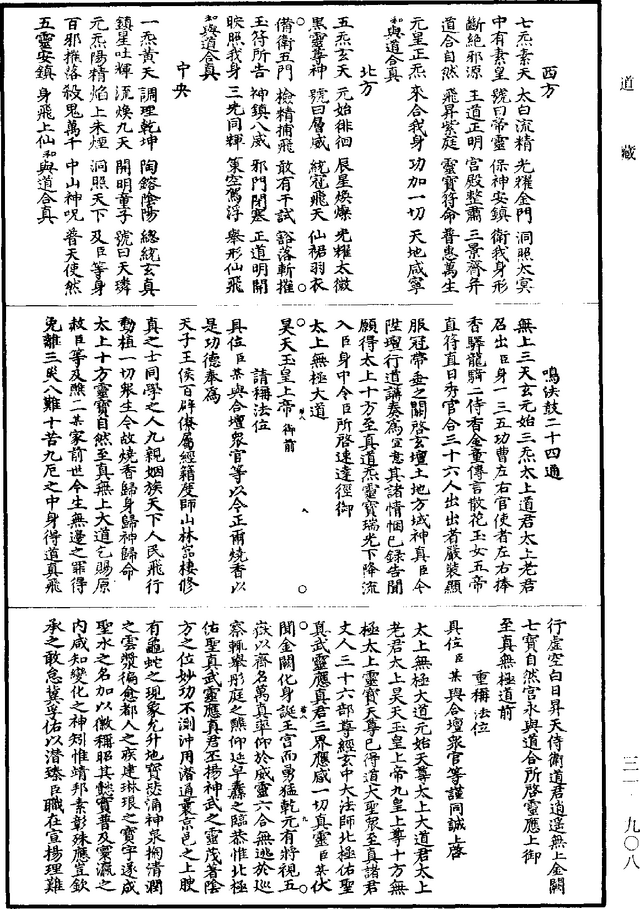 道藏
西方
七炁素天　太白流精　光耀金門　洞照太冥
中有素皇　號曰帝靈　保神安鎮　衛我身形
斷絕邪源　王道正明　宮殿整肅　三景齊并
道合自然　飛昇紫庭　靈寶符命　普惠萬生
元皇正炁　來合我身　功加一切　天地咸寧
和與道合真
北方
五炁玄天　元始徘徊　辰星煥爛　光耀太微
黑靈尊神　號曰層威　統冠飛天　仙裙羽衣
備衛五門　檢精捕飛　敢有干試　豁落斬摧
玉符所告　神鎮八威　邪門閉塞　正道明開
映照我身　三光同輝　策空駕浮　舉形仙飛
和與道合真
中央
一炁黃天　調理乾坤　陶鎔陰陽　總統玄真
鎮星吐輝　流煥九天　開明童子　號曰天璘
元炁陽精　焰上朱煙　洞照天下　及臣等身
百邪摧落　殺鬼萬千　中山神呪　普天使然
五靈安鎮　身飛上仙　和與道合真
鳴法鼓二十四通
無上三天玄元始三炁太上道君太上老君
召出臣身一三五功曹左右官使者左右捧
香驛龍騎二侍香金童傳言散花玉女五帝
直符直日香官合三十六人出出者嚴裝顯
服冠帶垂之關啓玄壇土地方域神真臣今
陞壇行道講奏為宣意其諸情悃已錄告聞
願得太上十方至真道炁靈寶瑞光下降流
入臣身中令臣所啓速達徑御
太上無極大道
昊天玉皇上帝　御前
請稱法位
具位臣某與合壇眾官等以今正爾燒香以
是功德奉為
天子王侯百辟僚屬經籍度師山林巖棲修
真之士同學之人九親姻族天下人民飛行
動植一切眾生今故燒香歸身歸神歸命
太上十方靈寶自然至真無上大道乞賜原
赦臣等及醮二某家前世今生無邊之罪得
免離三災八難十苦九厄之中身得道真飛
行虛空白日昇天侍衛道君逍遙無上金闕
七寶自然宮永與道合所啓靈應上御
至真無極道前
重稱法位
具位臣某與合壇眾官等謹同誠上啓
太上無極大道元始天尊太上大道君太上
老君太上昊天玉皇上帝九皇上尊十方無
極太上靈寶天尊已得道大聖眾至真諸君
丈人三十六部尊經玄中大法師北極佑聖
真武靈應真君三界應感一切真靈臣某伏
聞金闕化身誕王宮而勇猛乾元有將視五
嶽以齊名萬真率仰於威靈六合無逃於巡
察輒舉彤庭之醮仰延皁纛之臨恭惟北極
佑聖真武靈應真君丕揚神武之靈茂著陰
方之位妙功不測沖用潛通彙京邑之上腴
有龜蛇之現象允升地寶慈涌神泉掬清潤
之雲漿徧愈都人之疾建琳琅之寶宇遂成
聖水之名加以徽稱昭其懿實普及寰瀛之
內咸知變化之神矧惟靖邦素彰殊應豈欽
承之敢怠冀孚佑以潛臻臣職在宣揚理難
三一　九〇八